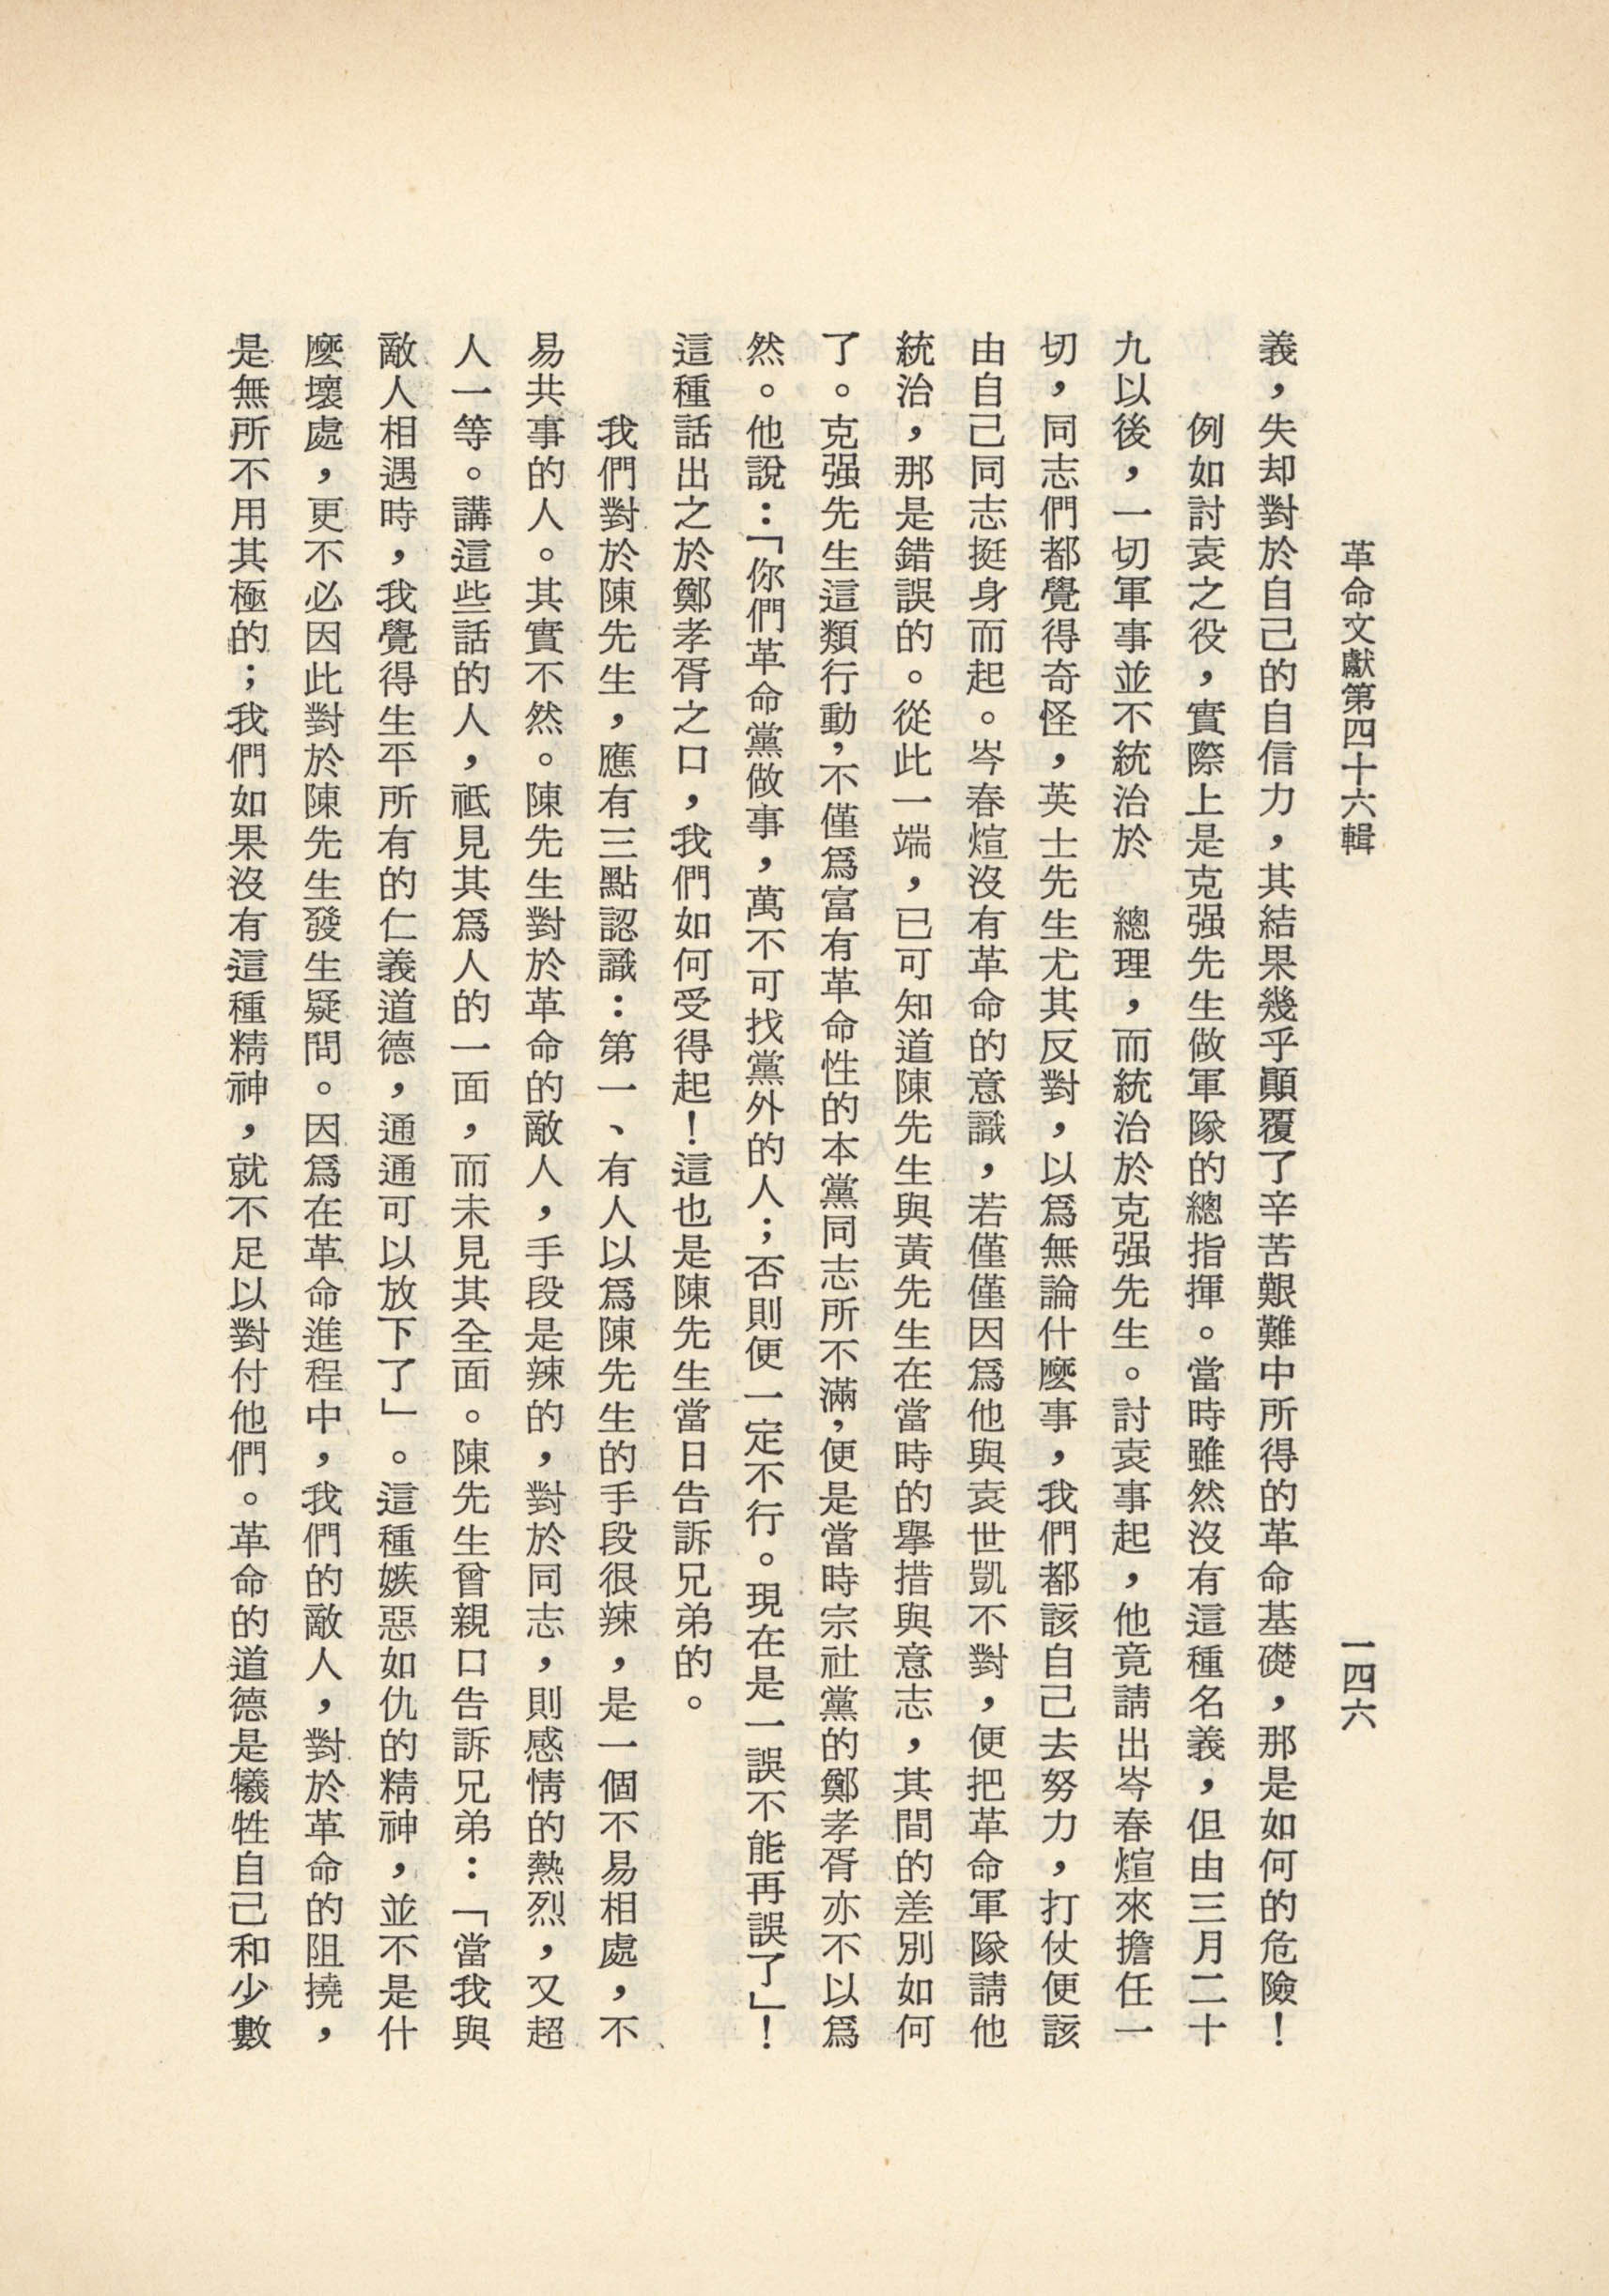 革命文獻第四十六輯
一四六
義，失却對於自己的自信力，其結果幾乎顚覆了辛苦艱難中所得的革命基礎，那是如何的危險！
例如討袁之役，實際上是克强先生做軍隊的總指揮。當時雖然沒有這種名義，但由三月二十
九以後，一切軍事並不統治於　總理，而統治於克强先生。討袁事起，他竟請出岑春煊來擔任一
切，同志們都覺得奇怪，英士先生尤其反對，以爲無論什麽事，我們都該自己去努力，打仗便該
由自己同志挺身而起。岑春煊沒有革命的意識，若僅僅因爲他與袁世凱不對，便把革命軍隊請他
統治，那是錯誤的。從此一端，已可知道陳先生與黃先生在當時的擧措與意志，其間的差別如何
了。克强先生這類行動，不僅爲富有革命性的本黨同志所不滿，便是當時宗社黨的鄭孝胥亦不以爲
然。他說：「你們革命黨做事，萬不可找黨外的人；否則便一定不行。現在是一誤不能再誤了」！
這種話出之於鄭孝胥之口，我們如何受得起！這也是陳先生當日告訴兄弟的。
我們對於陳先生，應有三點認識：第一、有人以爲陳先生的手段很辣，是一個不易相處，不
易共事的人。其實不然。陳先生對於革命的敵人，手段是辣的，對於同志，則感情的熱烈，又超
人一等。講這些話的人，祗見其爲人的一面，而未見其全面。陳先生曾親口告訴兄弟：「當我與
敵人相遇時，我覺得生平所有的仁義道德，通通可以放下了」。這種嫉惡如仇的精神，並不是什
麽壞處，更不必因此對於陳先生發生疑問。因爲在革命進程中，我們的敵人，對於革命的阻撓，
是無所不用其極的；我們如果沒有這種精神，就不足以對付他們。革命的道德是犧牲自己和少數